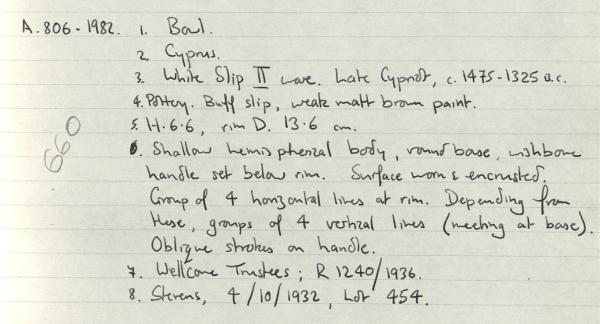 A.806-1982. 1. Bowl.
2. Cyprus.
3. White Slip II ware. Late Cypriot, c. 1475-1325 B.C.
4. Pottery. Buff slip, weak matt brown paint.
5. H. 6.6, rim D. 13.6 cm.
6. Shallow hemispherical body, round base, wishbone
handle set below rim. Surface worn & encrusted.
Group of 4 horizontal lines at rim. Depending from
these, groups of 4 vertical lines (meeting at base).
Oblique strokes on handle.
7. Wellcome Trustees; R 1240/1936.
8. Stevens, 4/10/1932, Lot 454.
660